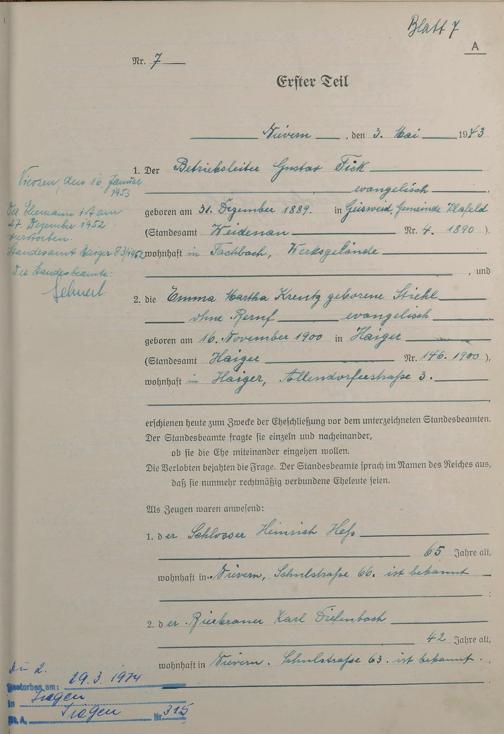 Blatt 7
A
Nr. 7
Erster Teil
Nievern, den 3. Mai 1943
1. Der Betriebsleiter Gustav Fick
evangelisch
geboren am 31. Dezember 1889. in Geisweid, Gemeinde Klafeld
(Standesamt Weidenau Nr. 4. 1890),
wohnhaft in Fachbach, Werksgelände
, und
2. die Emma Martha Kreutz geborene Stiehl
ohne Beruf evangelisch
geboren am 16. November 1900 in Haiger
(Standesamt Haiger Nr. 146. 1900),
wohnhaft in Haiger, Allendorferstraße 3.
erschienen heute zum Zwecke der Eheschließung vor dem unterzeichneten Standesbeamten.
Der Standesbeamte fragte sie einzeln und nacheinander,
ob sie die Ehe miteinander eingehen wollen.
Die Verlobten bejahten die Frage. Der Standesbeamte sprach im Namen des Reiches aus,
daß sie nunmehr rechtmäßig verbundene Eheleute seien.
Als Zeugen waren anwesend:
1. der Schlosser Heinrich Heß
65 Jahre alt,
wohnhaft in Nievern, Schulstraße 66. ist bekannt
;
2. der Karl Diefenbach
42 Jahre alt,
wohnhaft in Nievern, Schulstraße 63. ist bekannt.
den 16. Januar
1953
Der Ehemann ist am
27. Dezember 1952
verstorben.
Standesamt Haiger
Der Standesbeamte:
Zu 2.
Gestorben am: 29.3.1974
in
St. A. Nr. 315